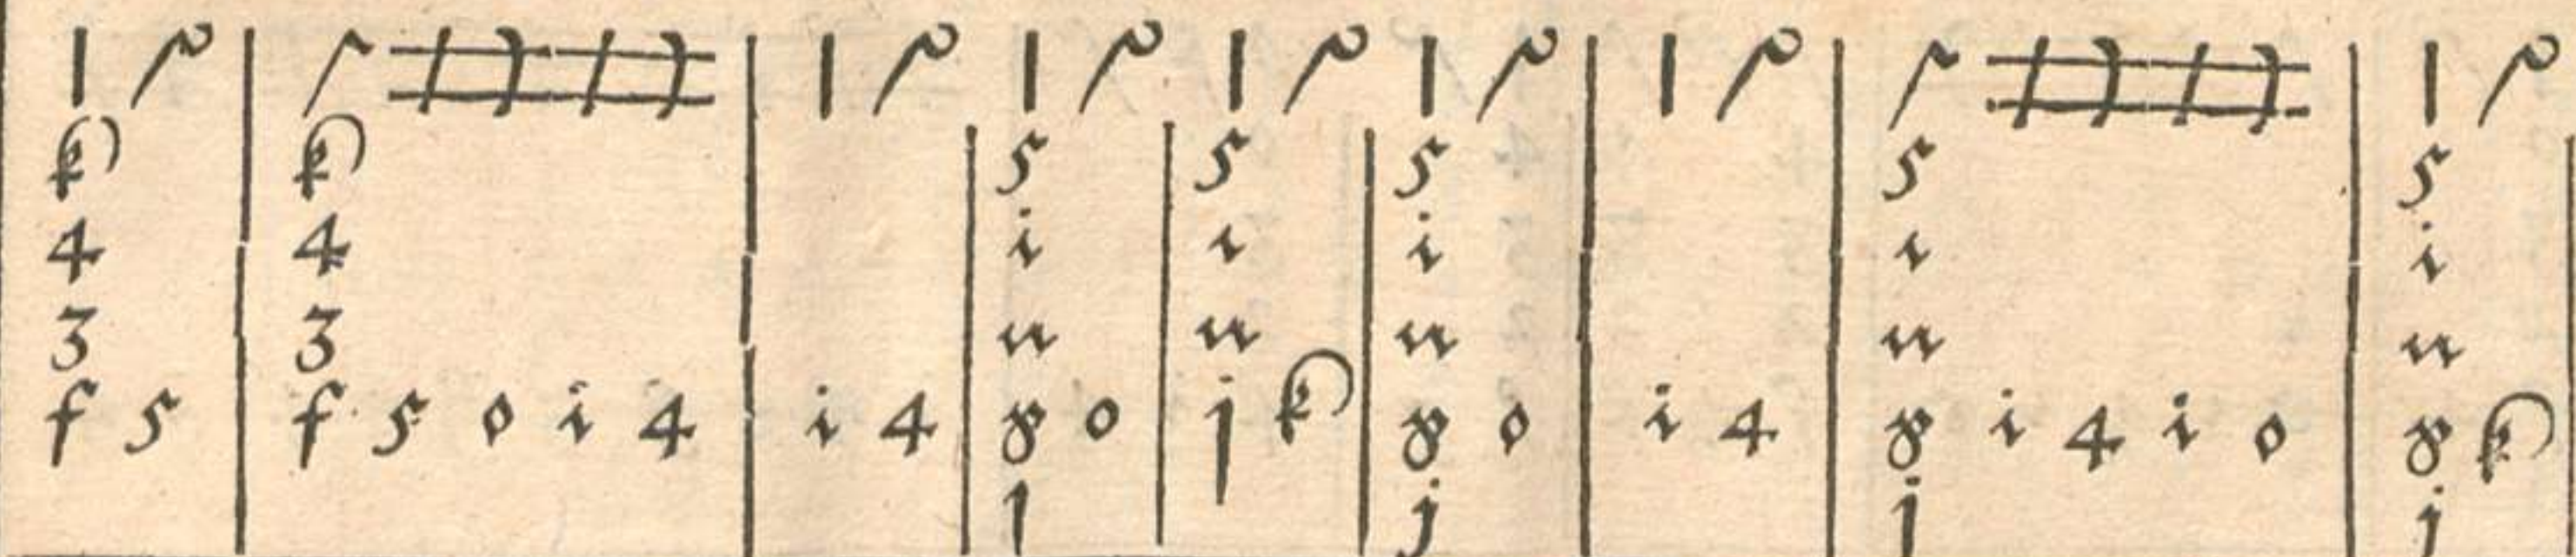 k k 5 5 5 5 5
4 4 i i i i i
3 3 n n n n n
f 5 f 5 o i 4 i 4 8 o j k 8 o i 4 8 i 4 i o 8 k
j j j j